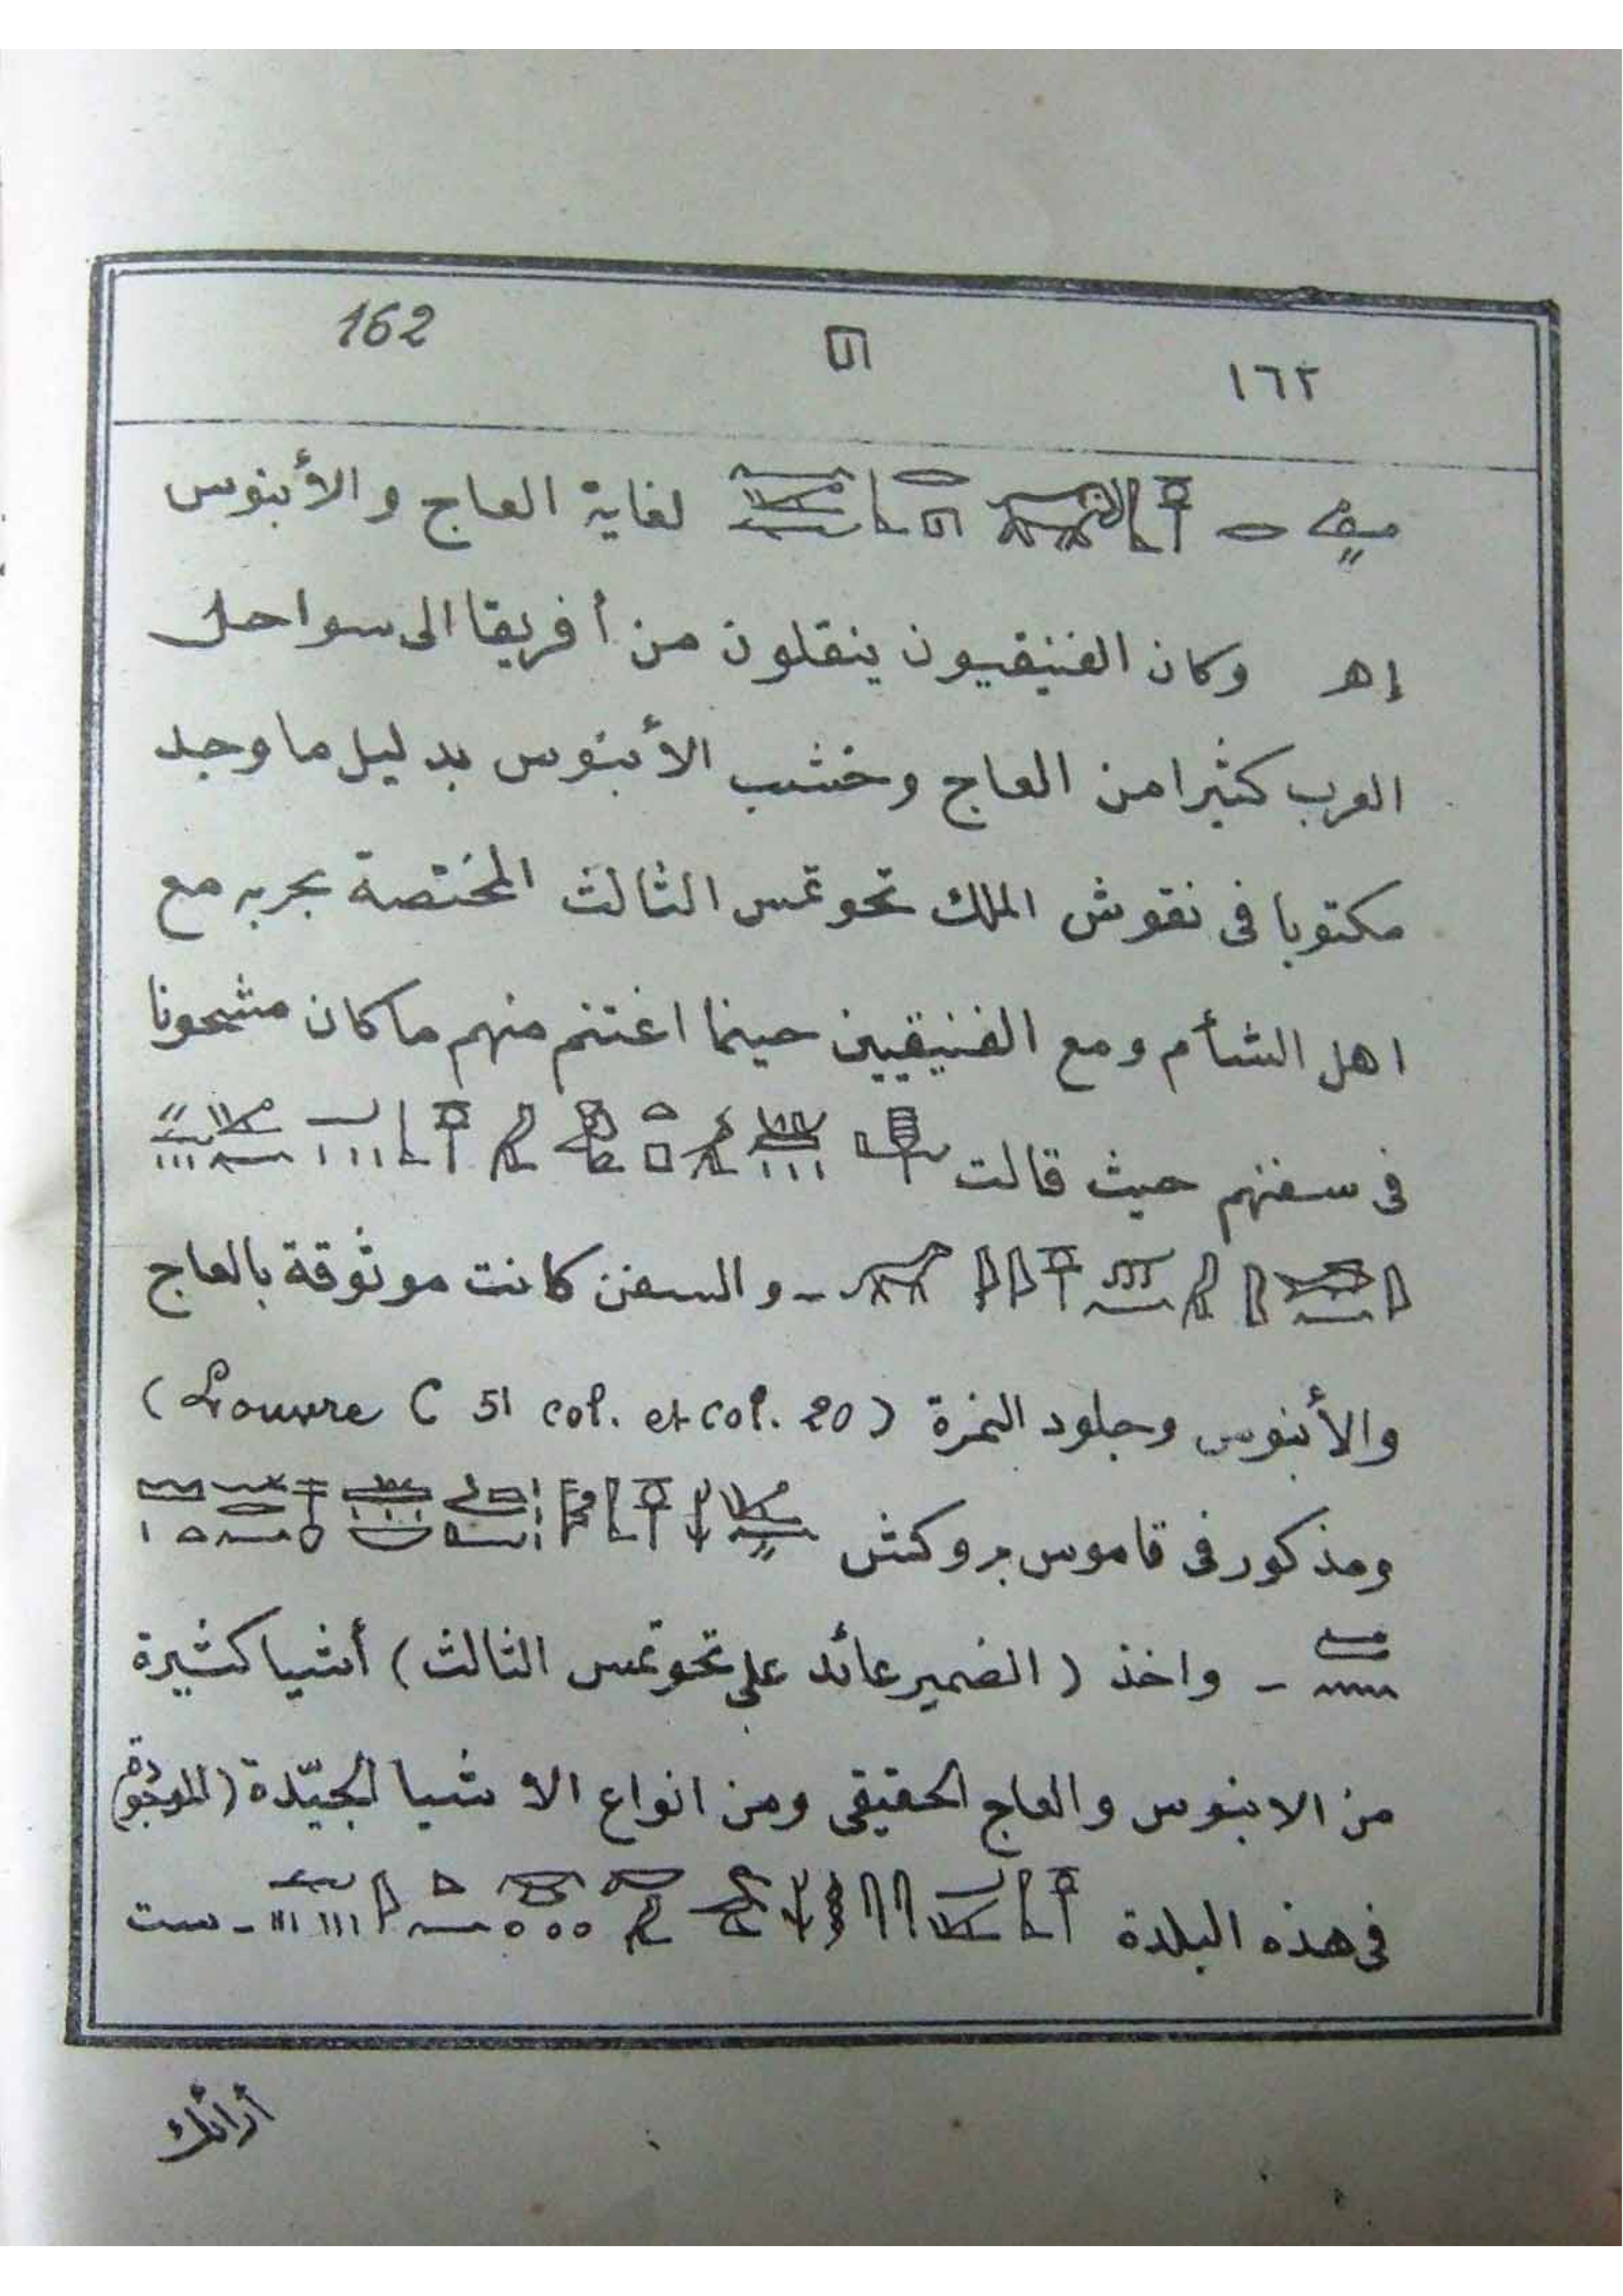 162
١٦٢
لغاية العاج والأبنوس
إهـ وكان الفنيقيون ينقلون من أفريقا الى سواحل
العرب كثيرا من العاج وخشب الأبنوس بدليل ما وجد
مكتوبا فى نقوش الملك تحوتمس الثالث المختصة بحربه مع
اهل الشأم ومع الفنيقيين حينما اغتنم منهم ما كان مشحونا
فى سفنهم حيث قالت
- والسفن كانت موثوقة بالعاج
والأبنوس وجلود النمرة (Louvre C 51 col. et col. 20)
ومذكور فى قاموس بروكش
- واخذ (الضمير عائد على تحوتمس الثالث) أشيا كثيرة
من الابنوس والعاج الحقيقى ومن انواع الاشيا الجيّدة (الموجودة)
فى هذه البلدة - ست
أرائك